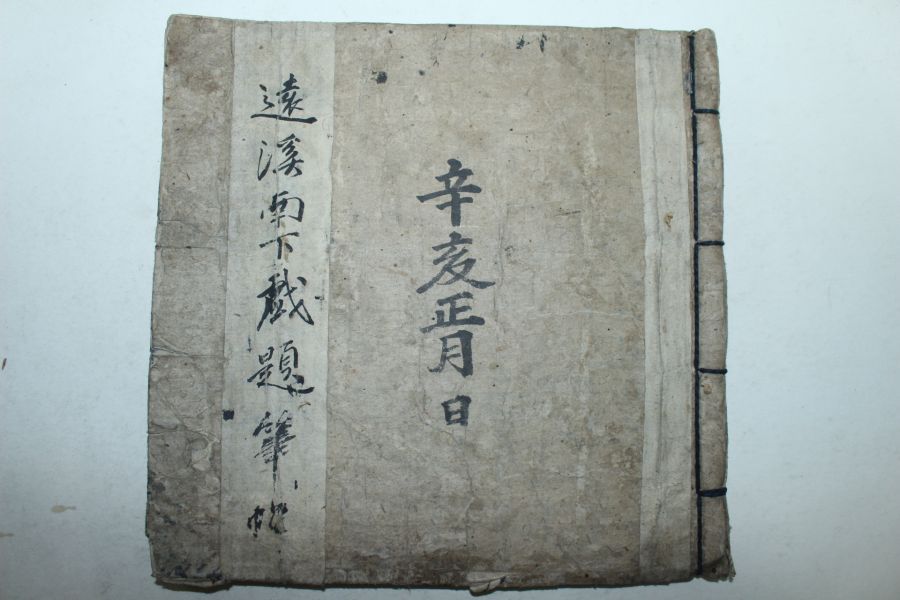 辛亥正月 日
遠溪南下戱題筆